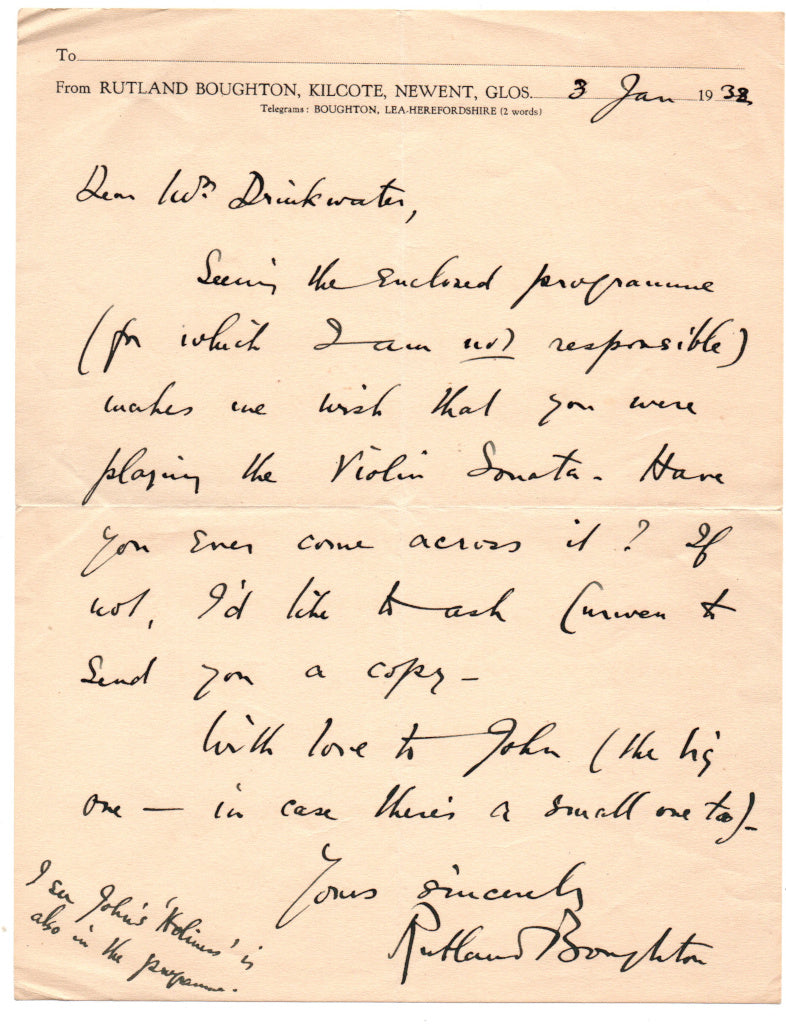 To
From RUTLAND BOUGHTON, KILCOTE, NEWENT, GLOS. 3 Jan 1932
Telegrams: BOUGHTON, LEA-HEREFORDSHIRE (2 words)
Dear Mrs Drinkwater,
Seeing the enclosed programme
(for which I am not responsible)
makes me wish that you were
playing the Violin Sonata. Have
you ever come across it? If
not, I'd like to ask Curwen to
send you a copy —
With love to John (the big
one — in case there's a small one too) —
Yours sincerely
Rutland Boughton
I see John's 'Holiness' is
also in the programme.